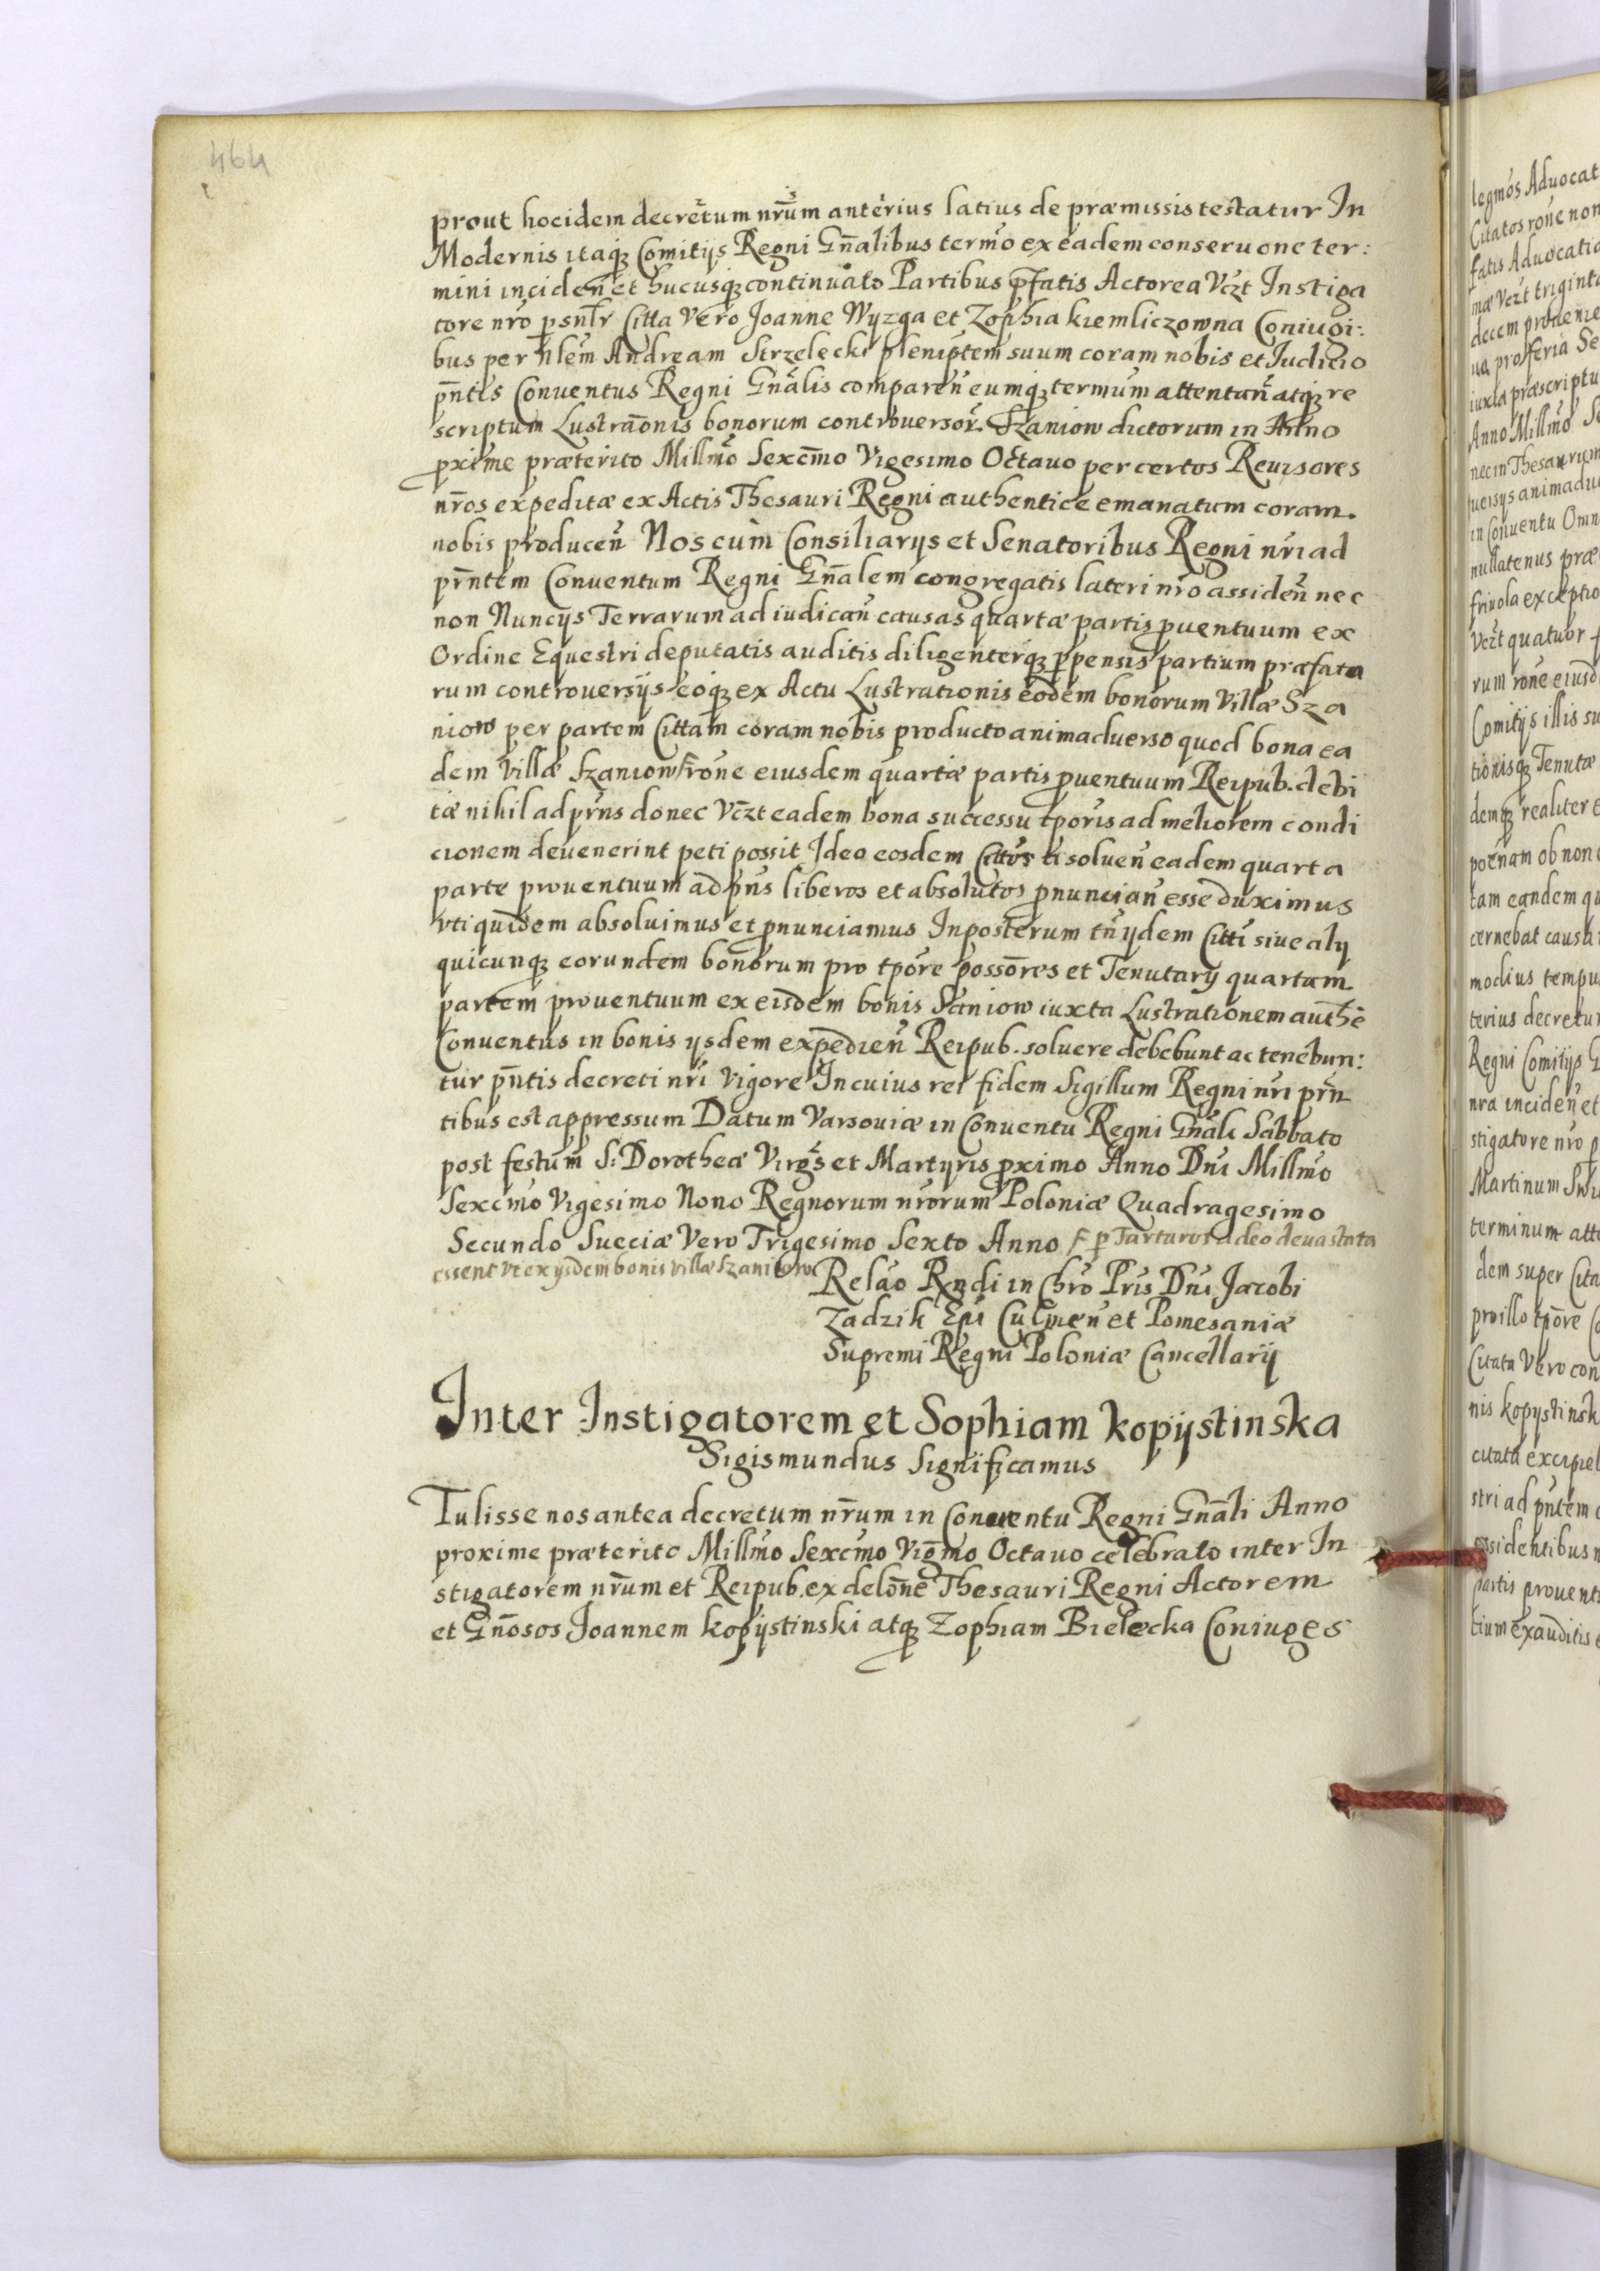 464
prout hocidem decretum nr̃um anterius latius de præmissis testatur In
Modernis itaqꝫ Comitijs Regni Gñalibus termo ex eadem conseruone ter:
mini inciden̄ et hucusqꝫ continuato Partibus p̄fatis Actorea Vczt Instiga
tore nr̃o psnl̃r Citta Vero Joanne Wyzga et Zophia kiemliczowna Coniugi:
bus per Nlem Andream Strzelecki pleniptem suum coram nobis et Iudicio
pñtis Conuentus Regni Gñalis comparen̄ eumqꝫ termum attentan̄ atqꝫ re
scriptum Lustraõnis bonorum controversor. Szaniow dictorum in Anno
pxime præterito Millmo Sexcmo Vigesimo Octauo per certos Reuisores
nr̃os expeditæ ex Actis Thesauri Regni authentice emanatum coram
nobis producen̄ Nos cum Consiliarijs et Senatoribus Regni nr̃i ad
prñtem Conuentum Regni Gñalem congregatis lateri nr̃o assiden̄ nec
non Nuncijs Terrarum ad iudican̄ causas quartæ partis puentuum ex
Ordine Equestri deputatis auditis diligenterqꝫ ppensis partium præfata
rum controuersijs eoqꝫ ex Actu Lustrationis eodem bonorum Villæ Sza
niow per partem Cittam coram nobis producto animaduerso quod bona ea
dem Villæ Szaniow rõne eiusdem quartæ partis puentuum Reipub. debi
tæ nihil ad prñs donec Vczt eadem bona successu tporis ad meliorem condi
cionem deuenerint peti possit Ideo eosdem Cittos a soluen̄ eadem quarta
parte prouentuum ad pñs liberos et absolutos pnuncian̄ esse duximus
vti quidem absoluimus et pnunciamus Inposterum tñ ijdem Citti siue alij
quicunqꝫ eorundem bonorum pro tpore possõres et Tenutarij quartam
partem prouentuum ex eisdem bonis Saniow iuxta Lustrationem authẽ
Conuentus in bonis ijsdem expedien̄ Reipub. soluere debebunt ac tenebun:
tur pñtis decreti nr̃i Vigore In cuius rei fidem Sigillum Regni nr̃i prñ
tibus est appressum Datum Varsouiæ in Conuentu Regni Gñali Sabbato
post festum S: Dorotheæ Virgs et Martyris proximo Anno Dñi Millmo
Sexcmo Vigesimo Nono Regnorum nr̃orum Poloniæ Quadragesimo
Secundo Sueciæ Vero Trigesimo Sexto Anno p Tartaros adeo deuastata
essent vt ex ijsdem bonis villæ Szaniow
Relão Rndi in Chr̃o Pris Dñi Jacobi
Zadzik Epi Culmen̄ et Pomesaniæ
Supremi Regni Poloniæ Cancellarij
Inter Instigatorem et Sophiam kopijstinska
Sigismundus Significamus
Tulisse nos antea decretum nr̃um in Conuentu Regni Gñali Anno
proxime præterito Millmo Sexcmo Vigmo Octauo celebrato inter In
stigatorem nr̃um et Reipub. ex delõne Thesauri Regni Actorem
et Gñosos Joannem kopijstinski atqꝫ Zophiam Bielecka Coniuges
legmos Aduocat
Citatos rõne non
fatis Aduocatia
mæ Vczt triginta
decem
iuxta præscriptu
Anno Millmo
nec in Thesaurum
in Conuentu Omn
nullatenus præ
friuola exceptio
Vczt quatuor
rum rõne eiusd
Comitijs illis su
tionisqꝫ Tenutæ
demqꝫ realiter e
poenam ob non
tam eandem qu
cernebat causa
modius tempu
terius decretu
Regni Comitijs G
nra inciden̄ et
stigatore nr̃o p
Martinum
terminum att
dem super Cita
pro illo tpõre
Citata Vero con
nis kopijstinsk
citata excipie
stri ad pñtem
ssidentibus n
partis prouent
tium exauditis